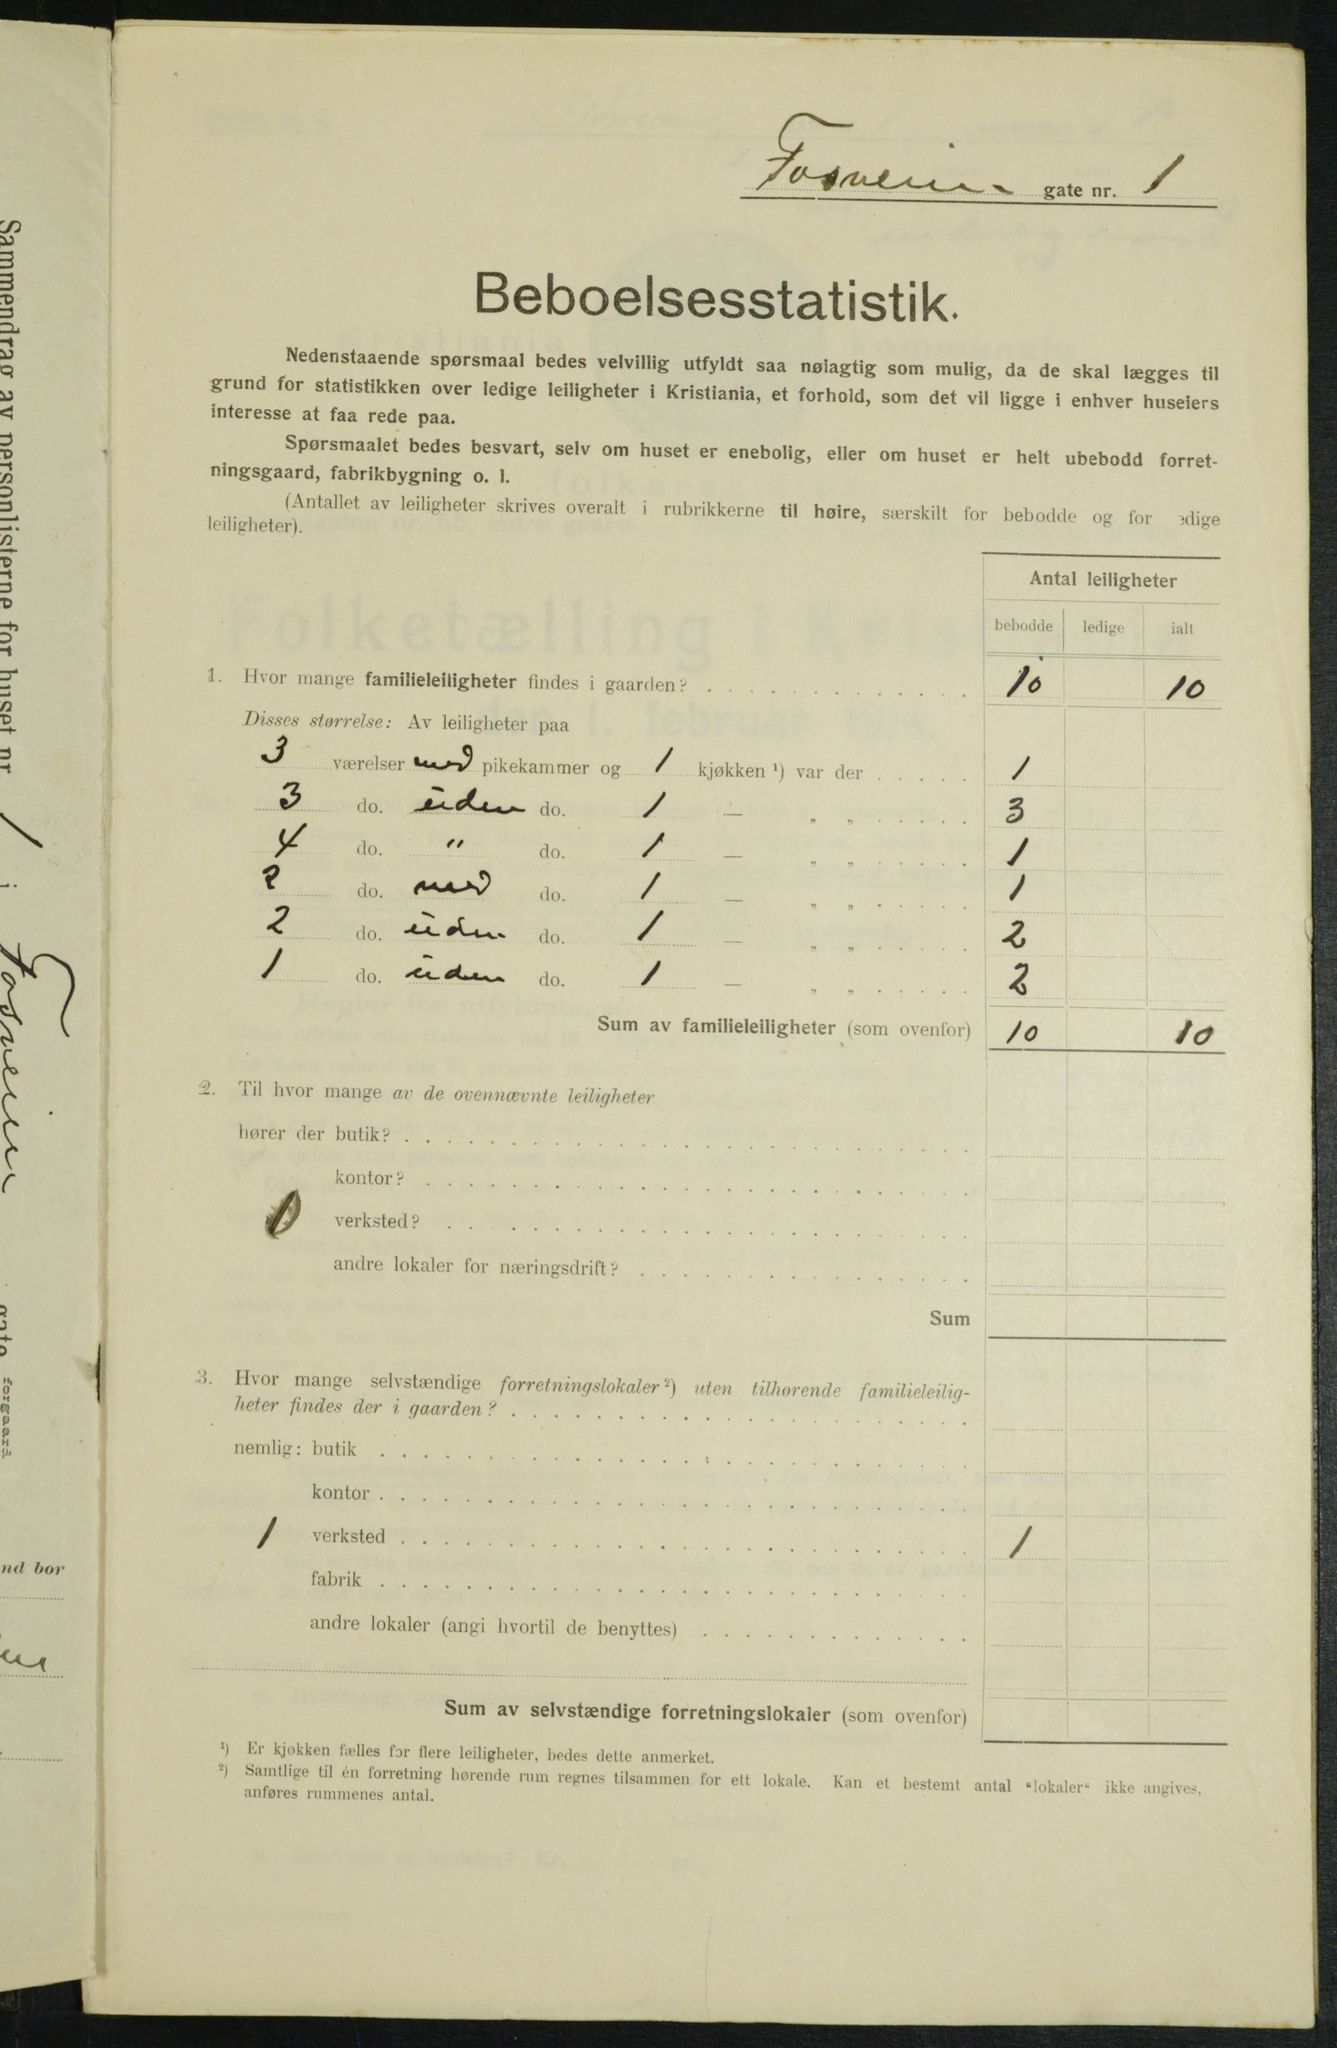 Fosveien gate nr. 1
Beboelsesstatistik.
Nedenstaaende spørsmaal bedes velvillig utfyldt saa nøiagtig som mulig, da de skal lægges til
grund for statistikken over ledige leiligheter i Kristiania, et forhold, som det vil ligge i enhver huseiers
interesse at faa rede paa.
Spørsmaalet bedes besvart, selv om huset er enebolig, eller om huset er helt ubebodd forret-
ningsgaard, fabrikbygning o. l.
(Antallet av leiligheter skrives overalt i rubrikkerne til høire, særskilt for bebodde og for edige
leiligheter).
Antal leiligheter
bebodde ledige ialt
1. Hvor mange familieleiligheter findes i gaarden? 10 10
Disses størrelse: Av leiligheter paa
3 værelser med pikekammer og 1 kjøkken ¹) var der 1
3 do. uden do. 1 — „ „ 3
4 do. " do. 1 — „ „ 1
2 do. med do. 1 — „ „ 1
2 do. uden do. 1 — „ „ 2
1 do. uden do. 1 — „ „ 2
Sum av familieleiligheter (som ovenfor) 10 10
2. Til hvor mange av de ovennævnte leiligheter
hører der butik?
kontor?
verksted?
andre lokaler for næringsdrift?
Sum
3. Hvor mange selvstændige forretningslokaler ²) uten tilhørende familieleilig-
heter findes der i gaarden?
nemlig: butik
kontor
1 verksted 1
fabrik
andre lokaler (angi hvortil de benyttes)
Sum av selvstændige forretningslokaler (som ovenfor)
¹) Er kjøkken fælles for flere leiligheter, bedes dette anmerket.
²) Samtlige til én forretning hørende rum regnes tilsammen for ett lokale. Kan et bestemt antal "lokaler" ikke angives,
anføres rummenes antal.
Sammendrag av personlisterne for huset nr 1 i Fosveien gate
forgaard
nd bor